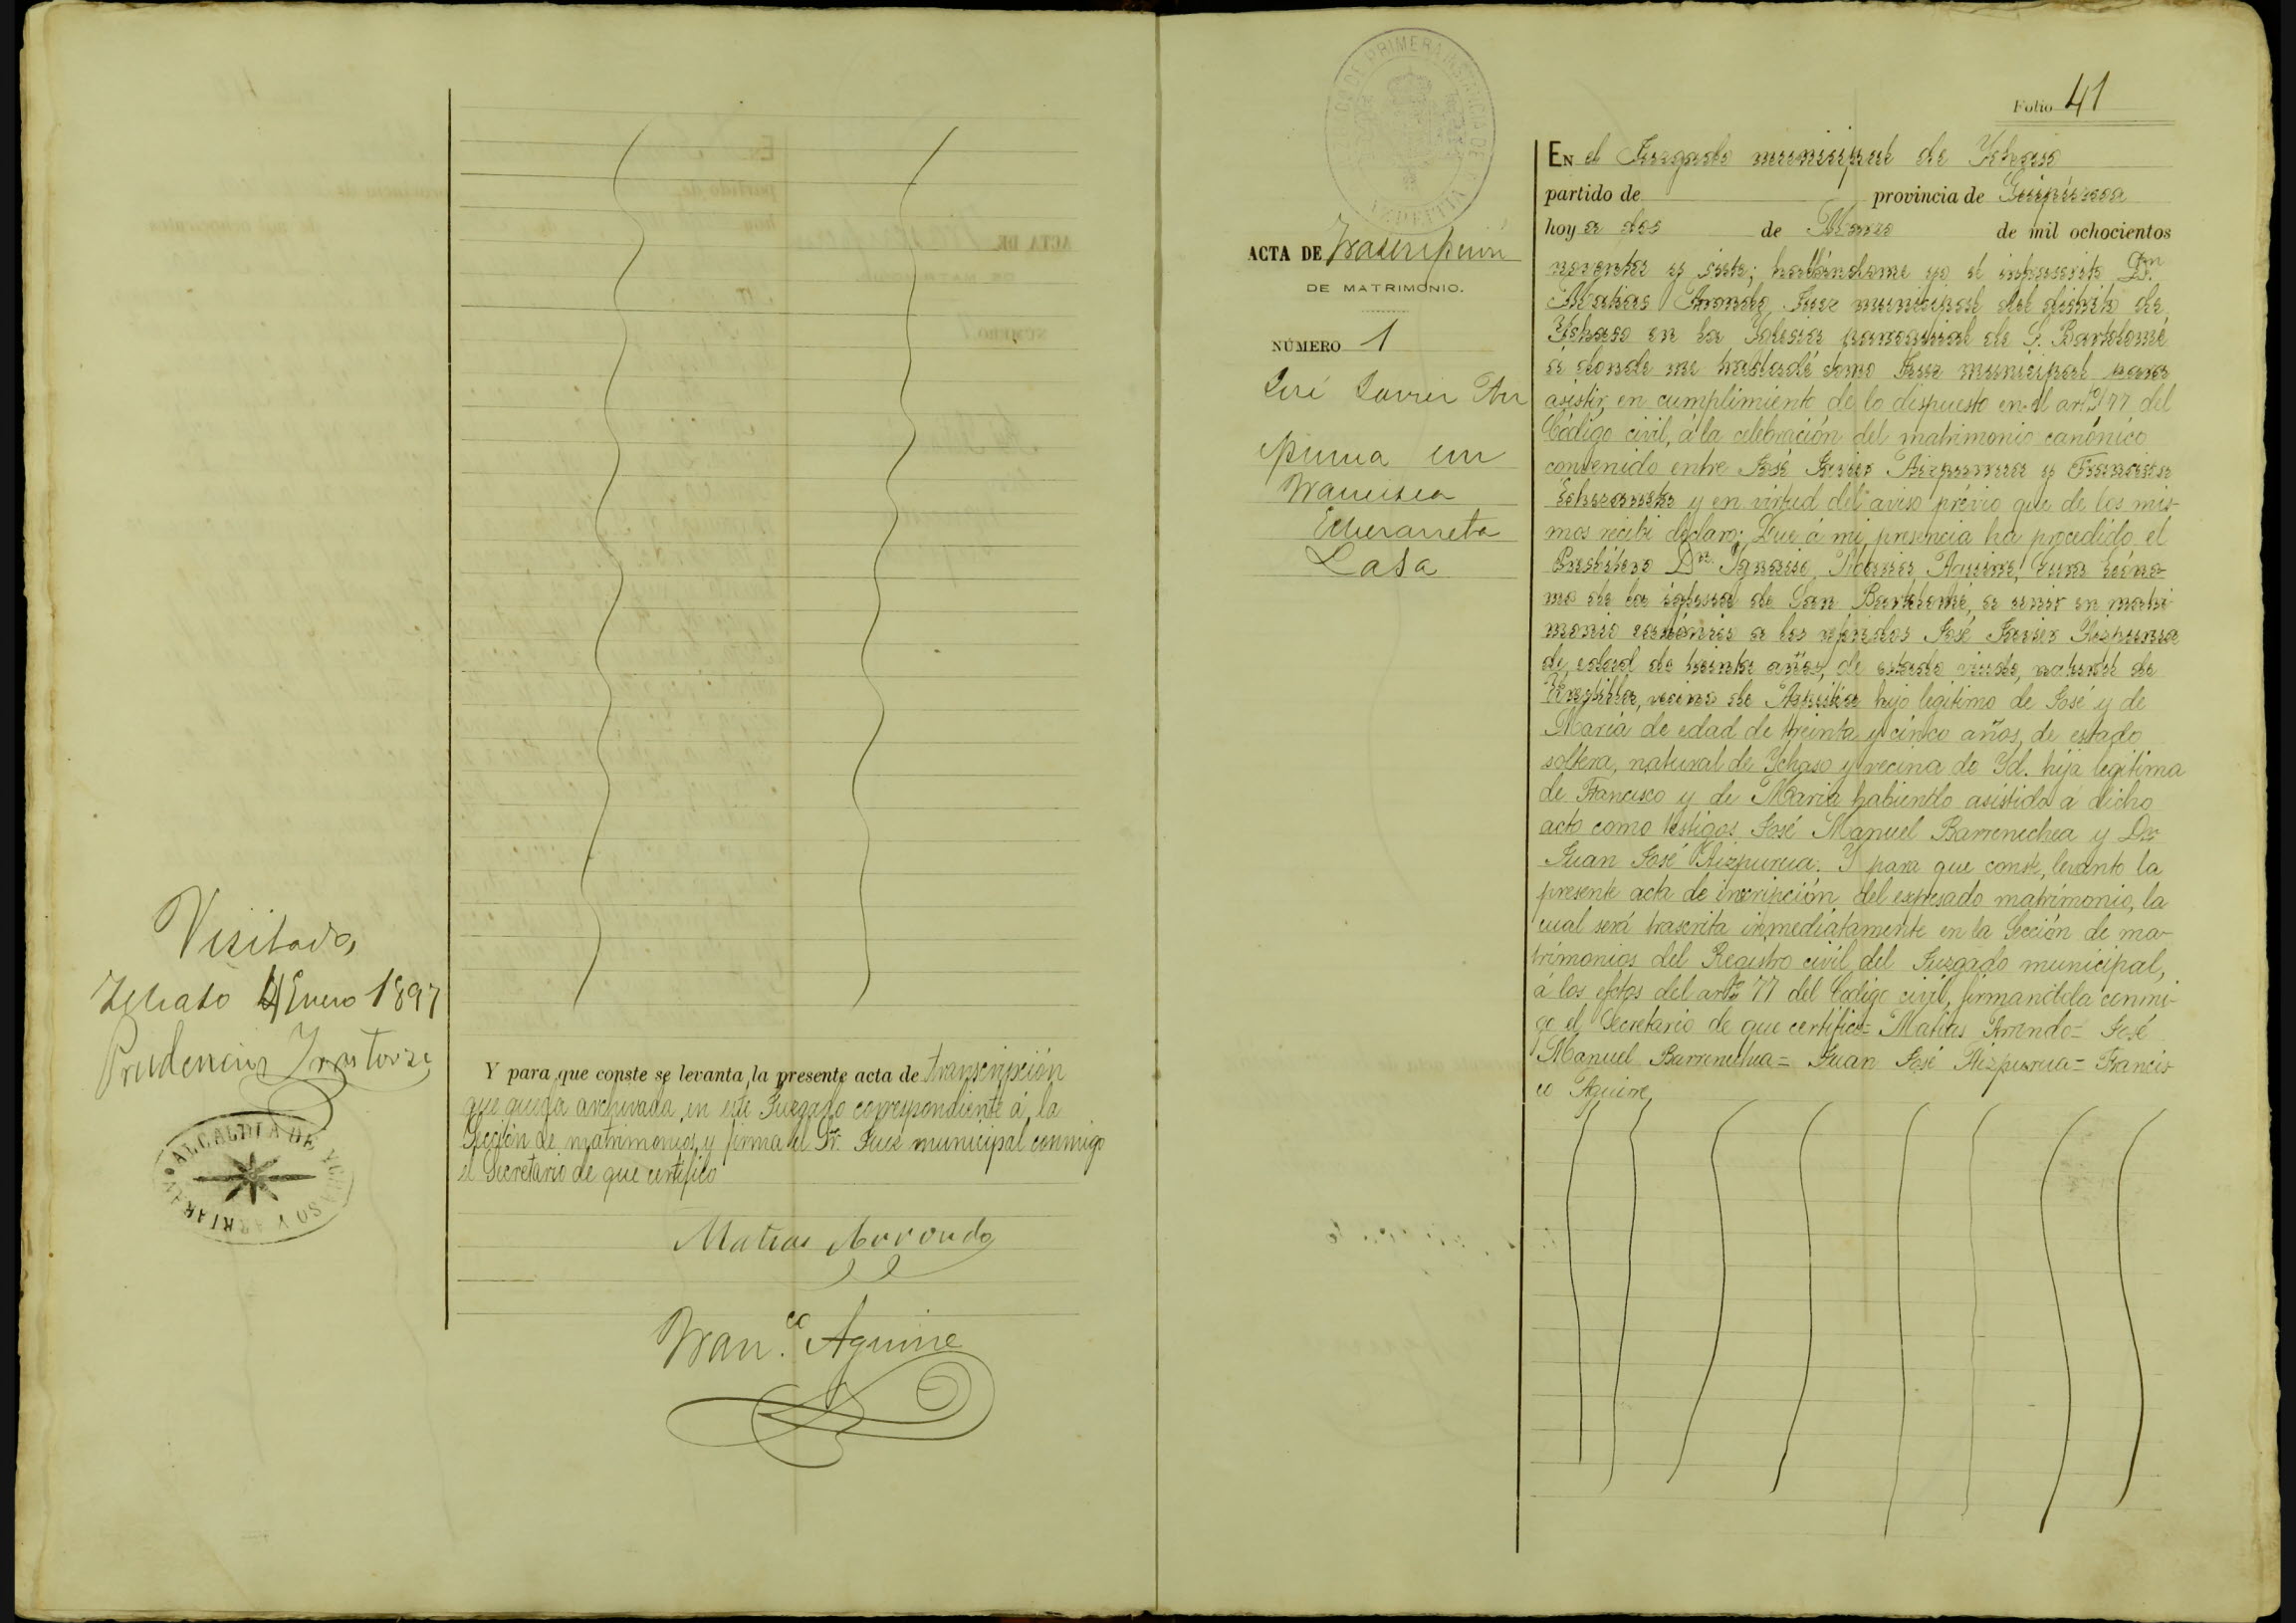 Visitado,
Ichaso 4 Enero 1897
Prudencio Irastorza
ALCALDIA DE YCHASO Y ARRIARAN
Y para que conste se levanta la presente acta de transcripción
que queda archivada en este Juzgado correspondiente á la
Sección de matrimonios, y firma el Sr. Juez municipal conmigo
el Secretario de que certifico
Matias Arrondo
Fran.co Aguirre
DE PRIMERA INSTANCIA DE
Folio 41
ACTA DE Trascripción
DE MATRIMONIO.
NÚMERO 1
José Javier
purua con
Francisca
Echezarreta
Lasa
EN el Juzgado municipal de Ychaso
partido de provincia de Guipúzcoa
hoy a dos de Marzo de mil ochocientos
noventa y siete; hallándome yo el infrascrito Dn
Matias Arrondo, Juez municipal del distrito de
Ychaso en la Yglesia parroquial de S. Bartolomé
á donde me trasladé como Juez municipal para
asistir, en cumplimiento de lo dispuesto en el arto 77 del
Código civil, á la celebración del matrimonio canónico
convenido entre José Javier Aizpurua y Francisca
Echezarreta y en virtud del aviso prévio que de los mis-
mos recibi declaro; Que á mi presencia ha procedido el
Presbítero Dn. Ignacio Aguirre, Cura Ecóno-
mo de la iglesia de San Bartolomé, a unir en matri-
monio canónico a los referidos José Javier Aizpurua
de edad de treinta años, de estado viudo, natural de
Urrestilla, vecino de Azpeitia hijo legitimo de José y de
Maria de edad de treinta y cinco años, de estado
soltera, natural de Ychaso y vecina de Yd. hija legitima
de Francisco y de Maria habiendo asistido á dicho
acto como testigos José Manuel Barrenechea y Dn
Juan José Aizpurua. Y para que conste, levanto la
presente acta de inscripción del expresado matrimonio, la
cual será trascrita inmediatamente en la Sección de ma-
trimonios del Registro civil del Juzgado municipal,
á los efectos del arto 77 del Código civil, firmandola conmi-
go el Secretario de que certifico= Matias Arrondo= José
Manuel Barrenechea= Juan José Aizpurua= Francis-
co Aguirre